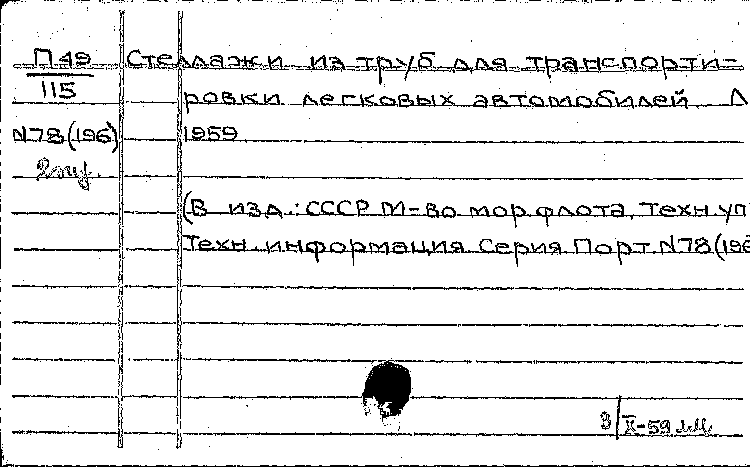 П49 Стеллажи из труб для транспорти-
115 ровки легковых автомобилей Л
N78(196) 1959
2 экз.
(В изд.: СССР М-во мор. флота. Техн. уп
Техн. информация Серия Порт. N78(196
3/X-59